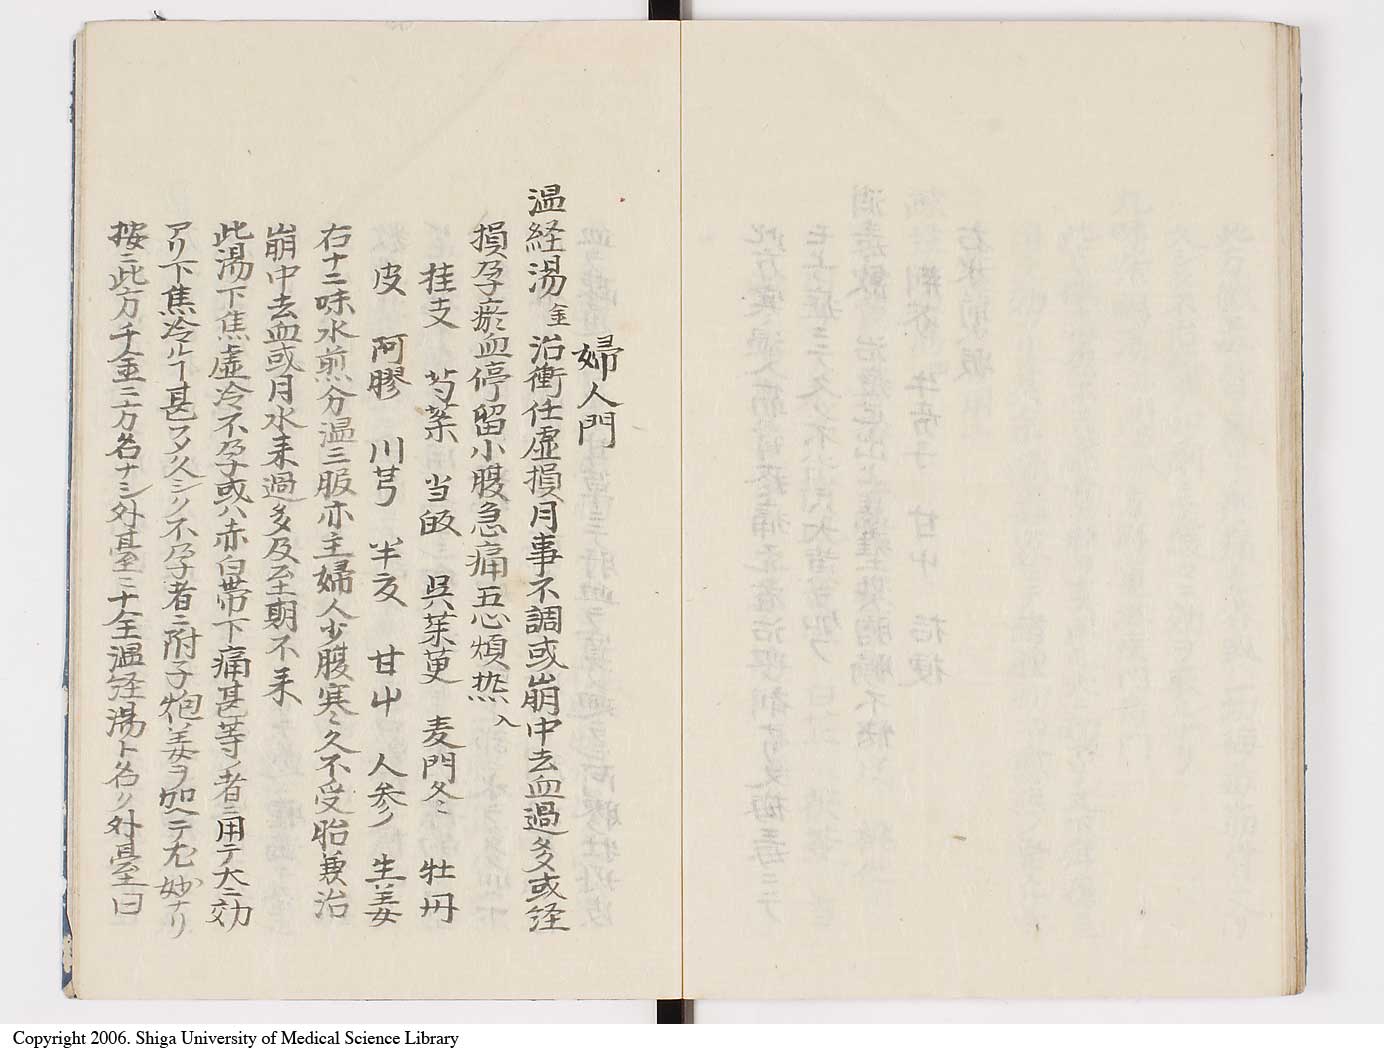 婦人門
温経湯 金 治衝任虚損月事不調或崩中去血過多或経
損孕瘀血停留小腹急痛五心煩热入
桂支 芍薬 当皈 呉茱萸 麦門冬 牡丹
皮 阿膠 川芎 半夏 甘屮 人参 生姜
右十二味水煎分温三服亦主婦人少腹寒久不受胎兼治
崩中去血或月水来過多及至期不来
此湯下焦虚冷不孕或ハ赤白帯下痛甚等ノ者ニ用テ大ニ効
アリ下焦冷ルヿ甚フノ久シク不孕者ニ附子炮姜ヲ加ヘテ尤妙ナリ
按ニ此方千金ニ方名ナシ外臺ニ千金温経湯ト名ク外臺曰
Copyright 2006. Shiga University of Medical Science Library